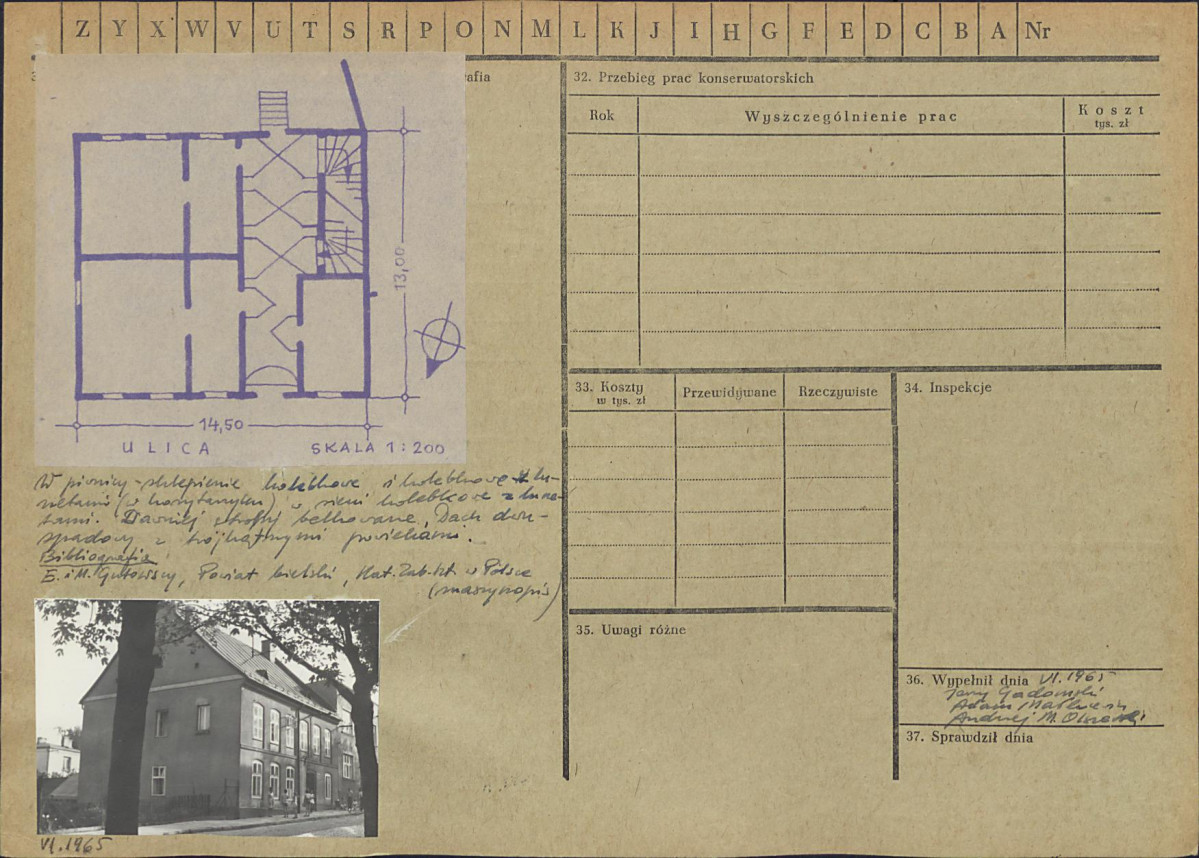 Z Y X W V U T S R P O N M L K J I H G F E D C B A Nr
3
afia
13,00
14,50
ULICA SKALA 1:200
W piwnicy - sklepienie kolebkowe i kolebkowe z lu-
netami (w korytarzyku), w sieni kolebkowe z lune-
tami. Dawniej stropy belkowane. Dach dwu-
spadowy z trójkątnymi
Bibliografia
E. i M. Gutowscy, Powiat bielski, Kat. Zab. Szt. w Polsce
(maszynopis)
VI.1965
32. Przebieg prac konserwatorskich
Rok Wyszczególnienie prac Koszt
tys. zł
33. Koszty Przewidywane Rzeczywiste
w tys. zł
34. Inspekcje
35. Uwagi różne
36. Wypełnił dnia VI.1965
Jerzy Gadomski
Adam
Andrzej M. Olszewski
37. Sprawdził dnia